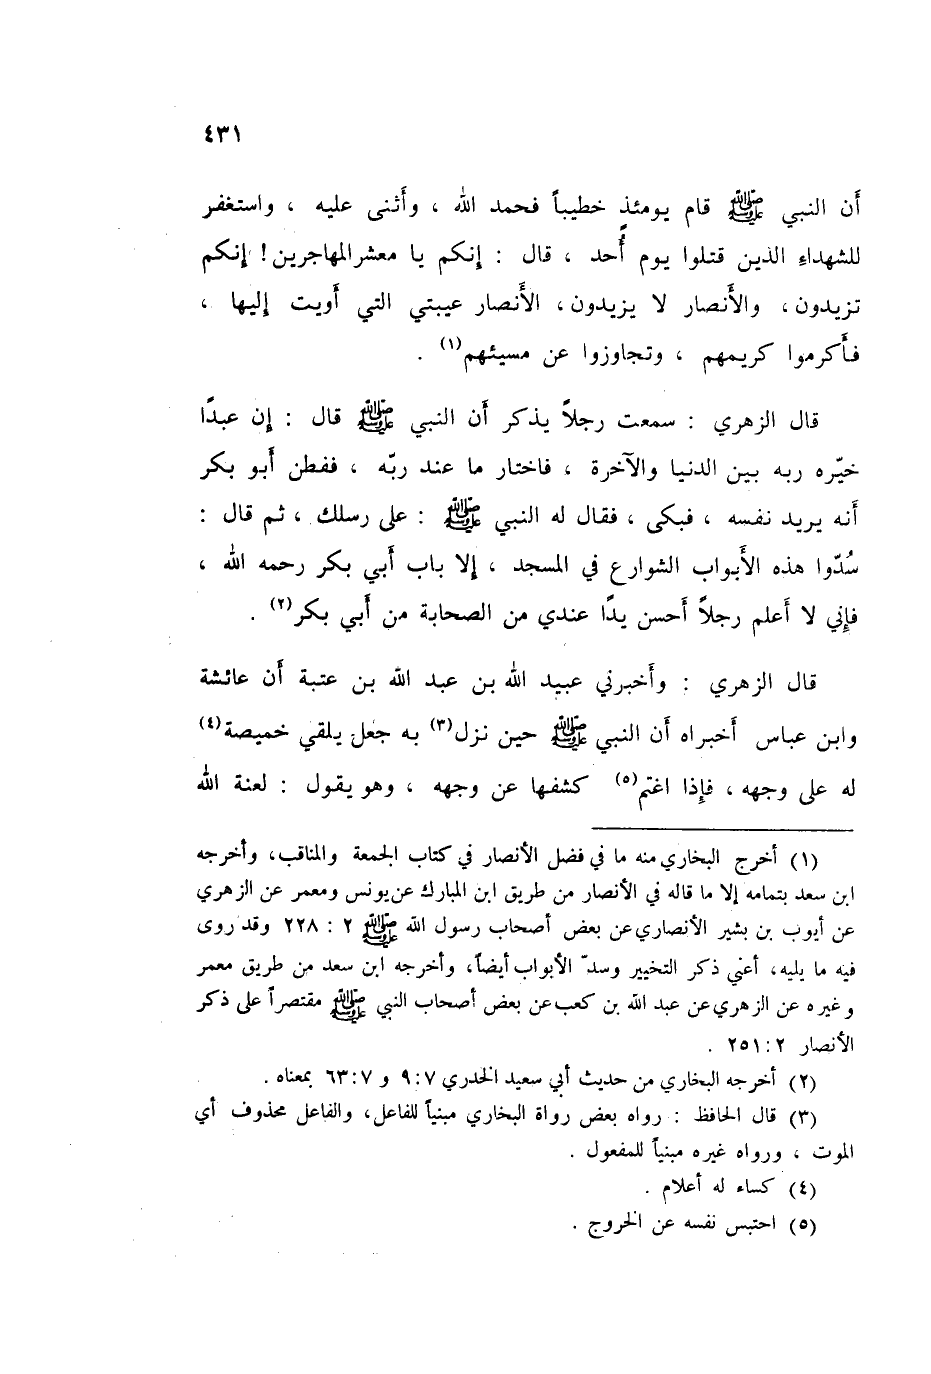 ٤٣١
أَن النبي ﷺ قام يومئذٍ خطيباً فحمد الله ، وأَثنى عليه ، واستغفر
للشهداءِ الذين قتلوا يوم أُحد ، قال : إنكم يا معشر المهاجرين ! إنكم
تزيدون ، والأَنصار لا يزيدون ، الأَنصار عيبتي التي أَويت إليها ،
فأَكرموا كريمهم ، وتجاوزوا عن مسيئهم(١) .
قال الزهري : سمعت رجلاً يذكر أَن النبي ﷺ قال : إن عبدًا
خيّره ربه بين الدنيا والآخرة ، فاختار ما عند ربّه ، ففطن أَبو بكر
أَنه يريد نفسه ، فبكى ، فقال له النبي ﷺ : على رسلك ، ثم قال :
سُدّوا هذه الأَبواب الشوارع في المسجد ، إلا باب أَبي بكر رحمه الله ،
فإني لا أَعلم رجلاً أَحسن يدًا عندي من الصحابة من أَبي بكر(٢) .
قال الزهري : وأَخبرني عبيد الله بن عبد الله بن عتبة أَن عائشة
وابن عباس أَخبراه أَن النبي ﷺ حين نزل(٣) به جعل يلقي خميصة(٤)
له على وجهه ، فإذا اغتم(٥) كشفها عن وجهه ، وهو يقول : لعنة الله
(١) أخرج البخاري منه ما في فضل الأنصار في كتاب الجمعة والمناقب، وأخرجه
ابن سعد بتمامه إلا ما قاله في الأنصار من طريق ابن المبارك عن يونس ومعمر عن الزهري
عن أيوب بن بشير الأنصاري عن بعض أصحاب رسول الله ﷺ ٢ : ٢٢٨ وقد روى
فيه ما يليه، أعني ذكر التخيير وسدّ الأبواب أيضاً، وأخرجه ابن سعد من طريق معمر
وغيره عن الزهري عن عبد الله بن كعب عن بعض أصحاب النبي ﷺ مقتصراً على ذكر
الأنصار ٢ : ٢٥١ .
(٢) أخرجه البخاري من حديث أبي سعيد الخدري ٧ : ٩ و ٧ : ٦٣ بمعناه .
(٣) قال الحافظ : رواه بعض رواة البخاري مبنياً للفاعل، والفاعل محذوف أي
الموت ، ورواه غيره مبنياً للمفعول .
(٤) كساء له أعلام .
(٥) احتبس نفسه عن الخروج .